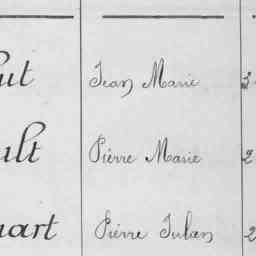 ut Jean Marie 3
ult Pierre Marie 2
art Pierre Julien 2